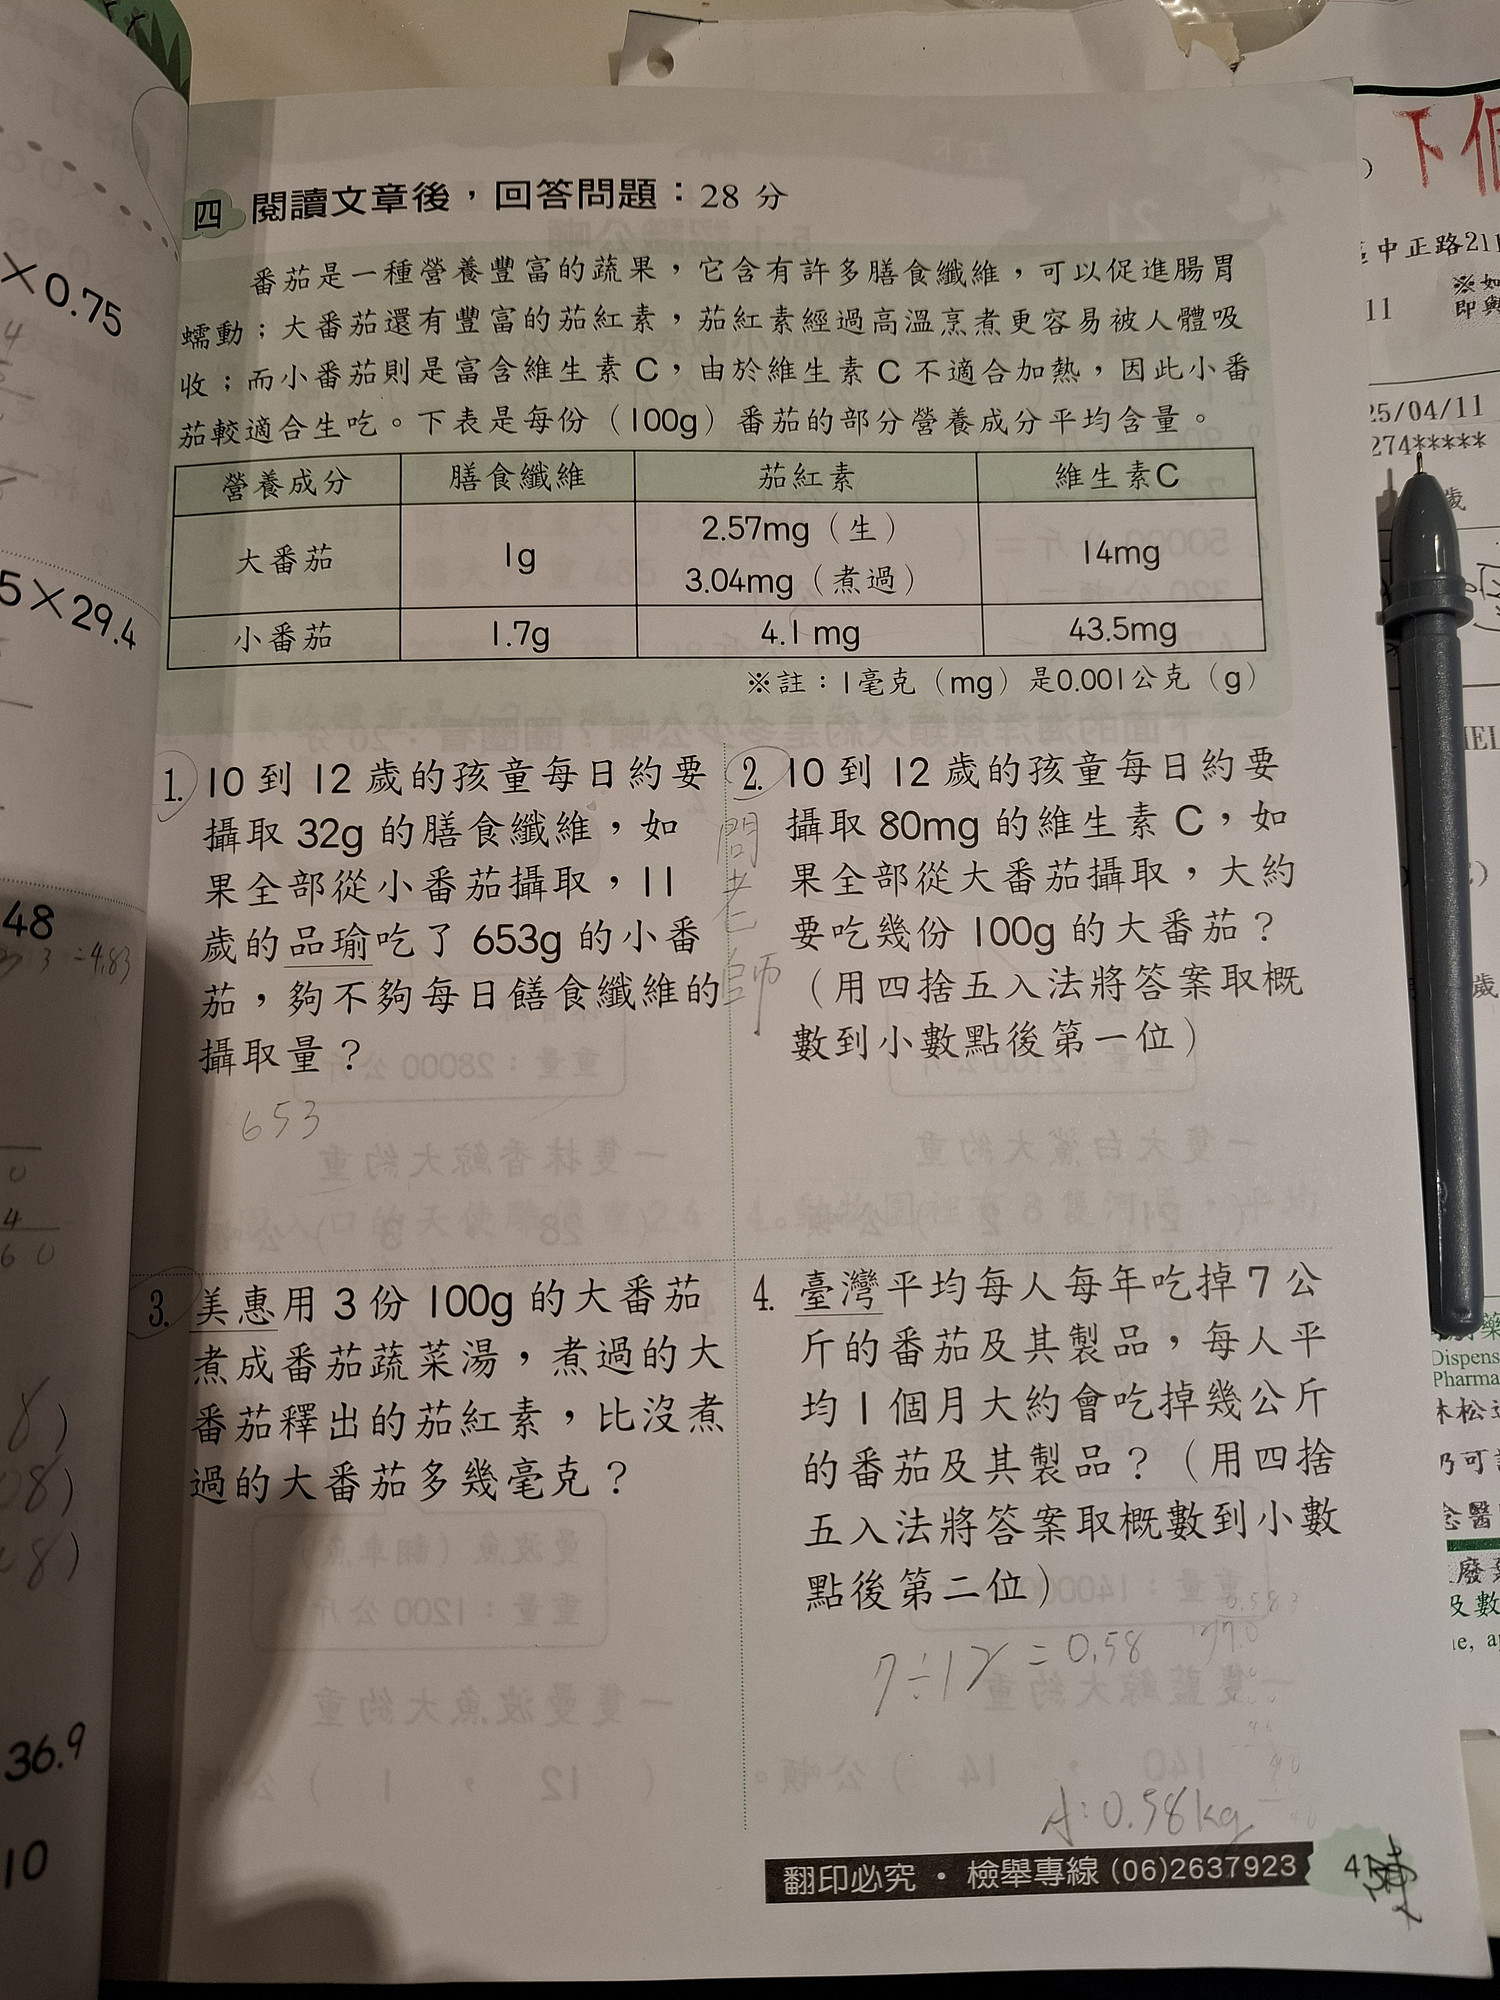 四 閱讀文章後，回答問題：28 分
番茄是一種營養豐富的蔬果，它含有許多膳食纖維，可以促進腸胃
蠕動；大番茄還有豐富的茄紅素，茄紅素經過高溫烹煮更容易被人體吸
收；而小番茄則是富含維生素 C，由於維生素 C 不適合加熱，因此小番
茄較適合生吃。下表是每份（100g）番茄的部分營養成分平均含量。
營養成分 膳食纖維 茄紅素 維生素C
大番茄 1g 2.57mg（生） 3.04mg（煮過） 14mg
小番茄 1.7g 4.1 mg 43.5mg
※註：1毫克（mg）是0.001公克（g）
1. 10 到 12 歲的孩童每日約要
攝取 32g 的膳食纖維，如
果全部從小番茄攝取，11
歲的品瑜吃了 653g 的小番
茄，夠不夠每日饍食纖維的
攝取量？
653
問老師
2. 10 到 12 歲的孩童每日約要
攝取 80mg 的維生素 C，如
果全部從大番茄攝取，大約
要吃幾份 100g 的大番茄？
（用四捨五入法將答案取概
數到小數點後第一位）
3. 美惠用 3 份 100g 的大番茄
煮成番茄蔬菜湯，煮過的大
番茄釋出的茄紅素，比沒煮
過的大番茄多幾毫克？
4. 臺灣平均每人每年吃掉 7 公
斤的番茄及其製品，每人平
均 1 個月大約會吃掉幾公斤
的番茄及其製品？（用四捨
五入法將答案取概數到小數
點後第二位）
7÷12 = 0.58
A: 0.58kg
翻印必究 · 檢舉專線 (06)2637923
×0.75
5×29.4
48
3 =4.83
36.9
10
下個
中正路211
※如
11
即與
25/04/11
274*****
歲
歲
Dispens
Pharma